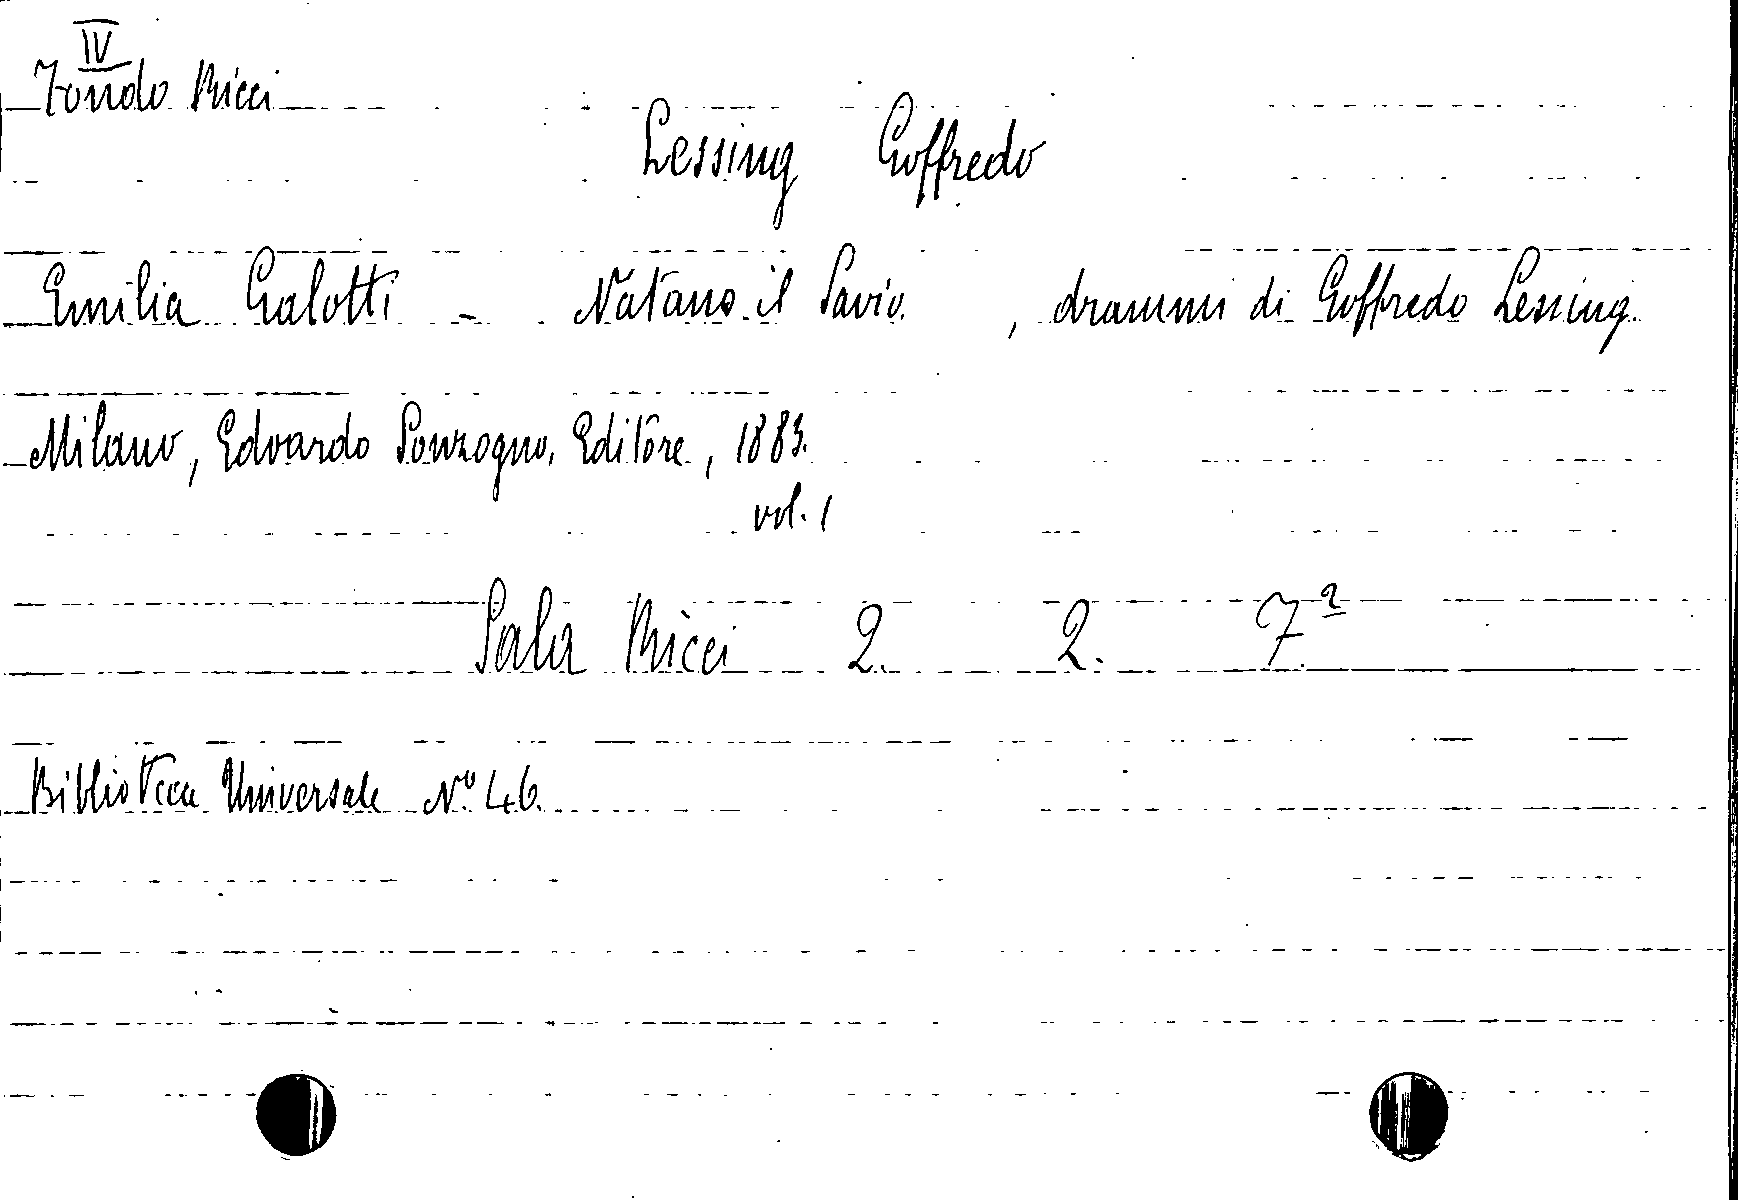 IV
Fondo Ricci
Lessing Goffredo
Emilia Galotti - Natano il Savio. , drammi di Goffredo Lessing.
Milano, Edoardo Sonzogno, Editore, 1883.
vol. 1
Sala Ricci 2. 2. 7²
Biblioteca Universale Nº 46.